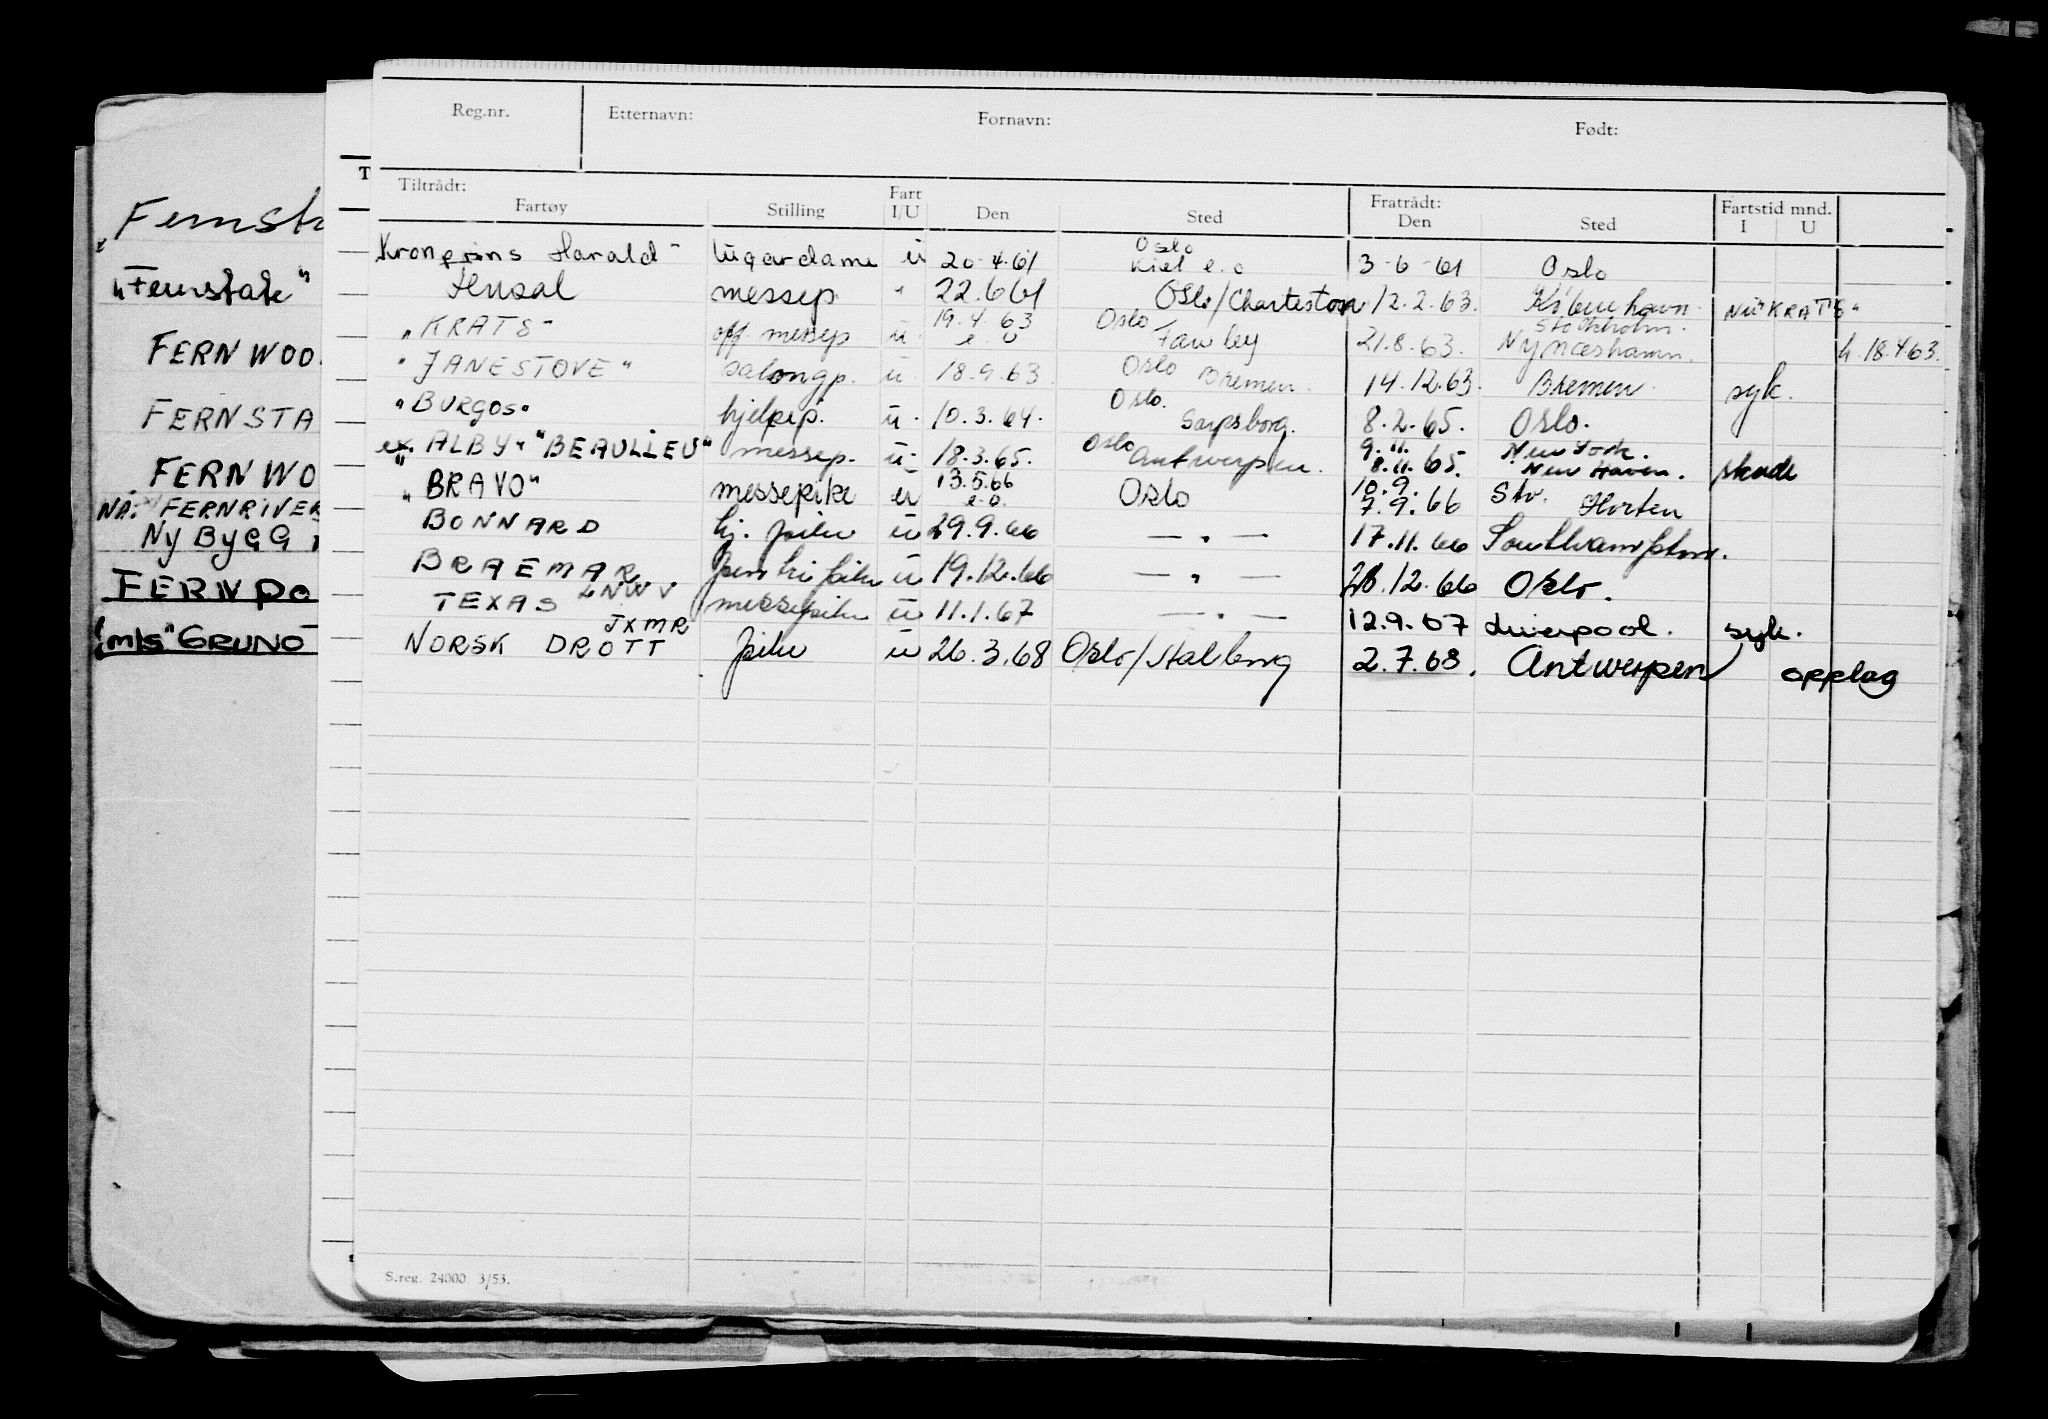 Reg.nr. Etternavn: Fornavn: Født:
Tiltrådt: Fartøy Stilling Fart I/U Den Sted Fratrådt: Den Sted Fartstid mnd. I U
Kronprins Harald lugardame u 20.4.61 Oslo Kiel e.o 3-6-61 Oslo
messep. " 22.6.61 Oslo/Charleston 12.2.63. København. NÅ "KRATIS"
"KRATS" off. messep u. 19.4.63 e.o Oslo Fawley 21.8.63. Stockholm. Nynæshamn. h. 18.4.63.
"JANESTOVE" salongp. u. 18.9.63 Oslo Bremen. 14.12.63. Bremen. syk.
"BURGOS" hjelpep. u. 10.3.64. Oslo. Sarpsborg. 8.2.65. Oslo.
ex. ALBY "BEAULIEU" messep. u. 18.3.65. Oslo Antwerpen. 9.11. 8.11.65. New York. New Haven. skade
"BRAVO" messepike u 13.5.66 e.o. Oslo 10.9. 7.9.66 Stv. Horten
BONNARD hj. pike u 29.9.66 — " — 17.11.66 Southampton.
BRAEMAR pentripike u 19.12.66 — " — 28.12.66 Oslo.
TEXAS LNWV messepike u 11.1.67 — " — 12.9.67 Liverpool. syk.
NORSK DROTT JXMR pike u 26.3.68 Oslo/Aalborg 2.7.68. Antwerpen opplag
S.reg. 24000 3/53.
T
"Fernsta
"Fernstate"
FERNWOO
FERNSTA
FERNWO
NÅ: FERNRIVER
NYBYGG
FERNPO
m/s "GRUNO